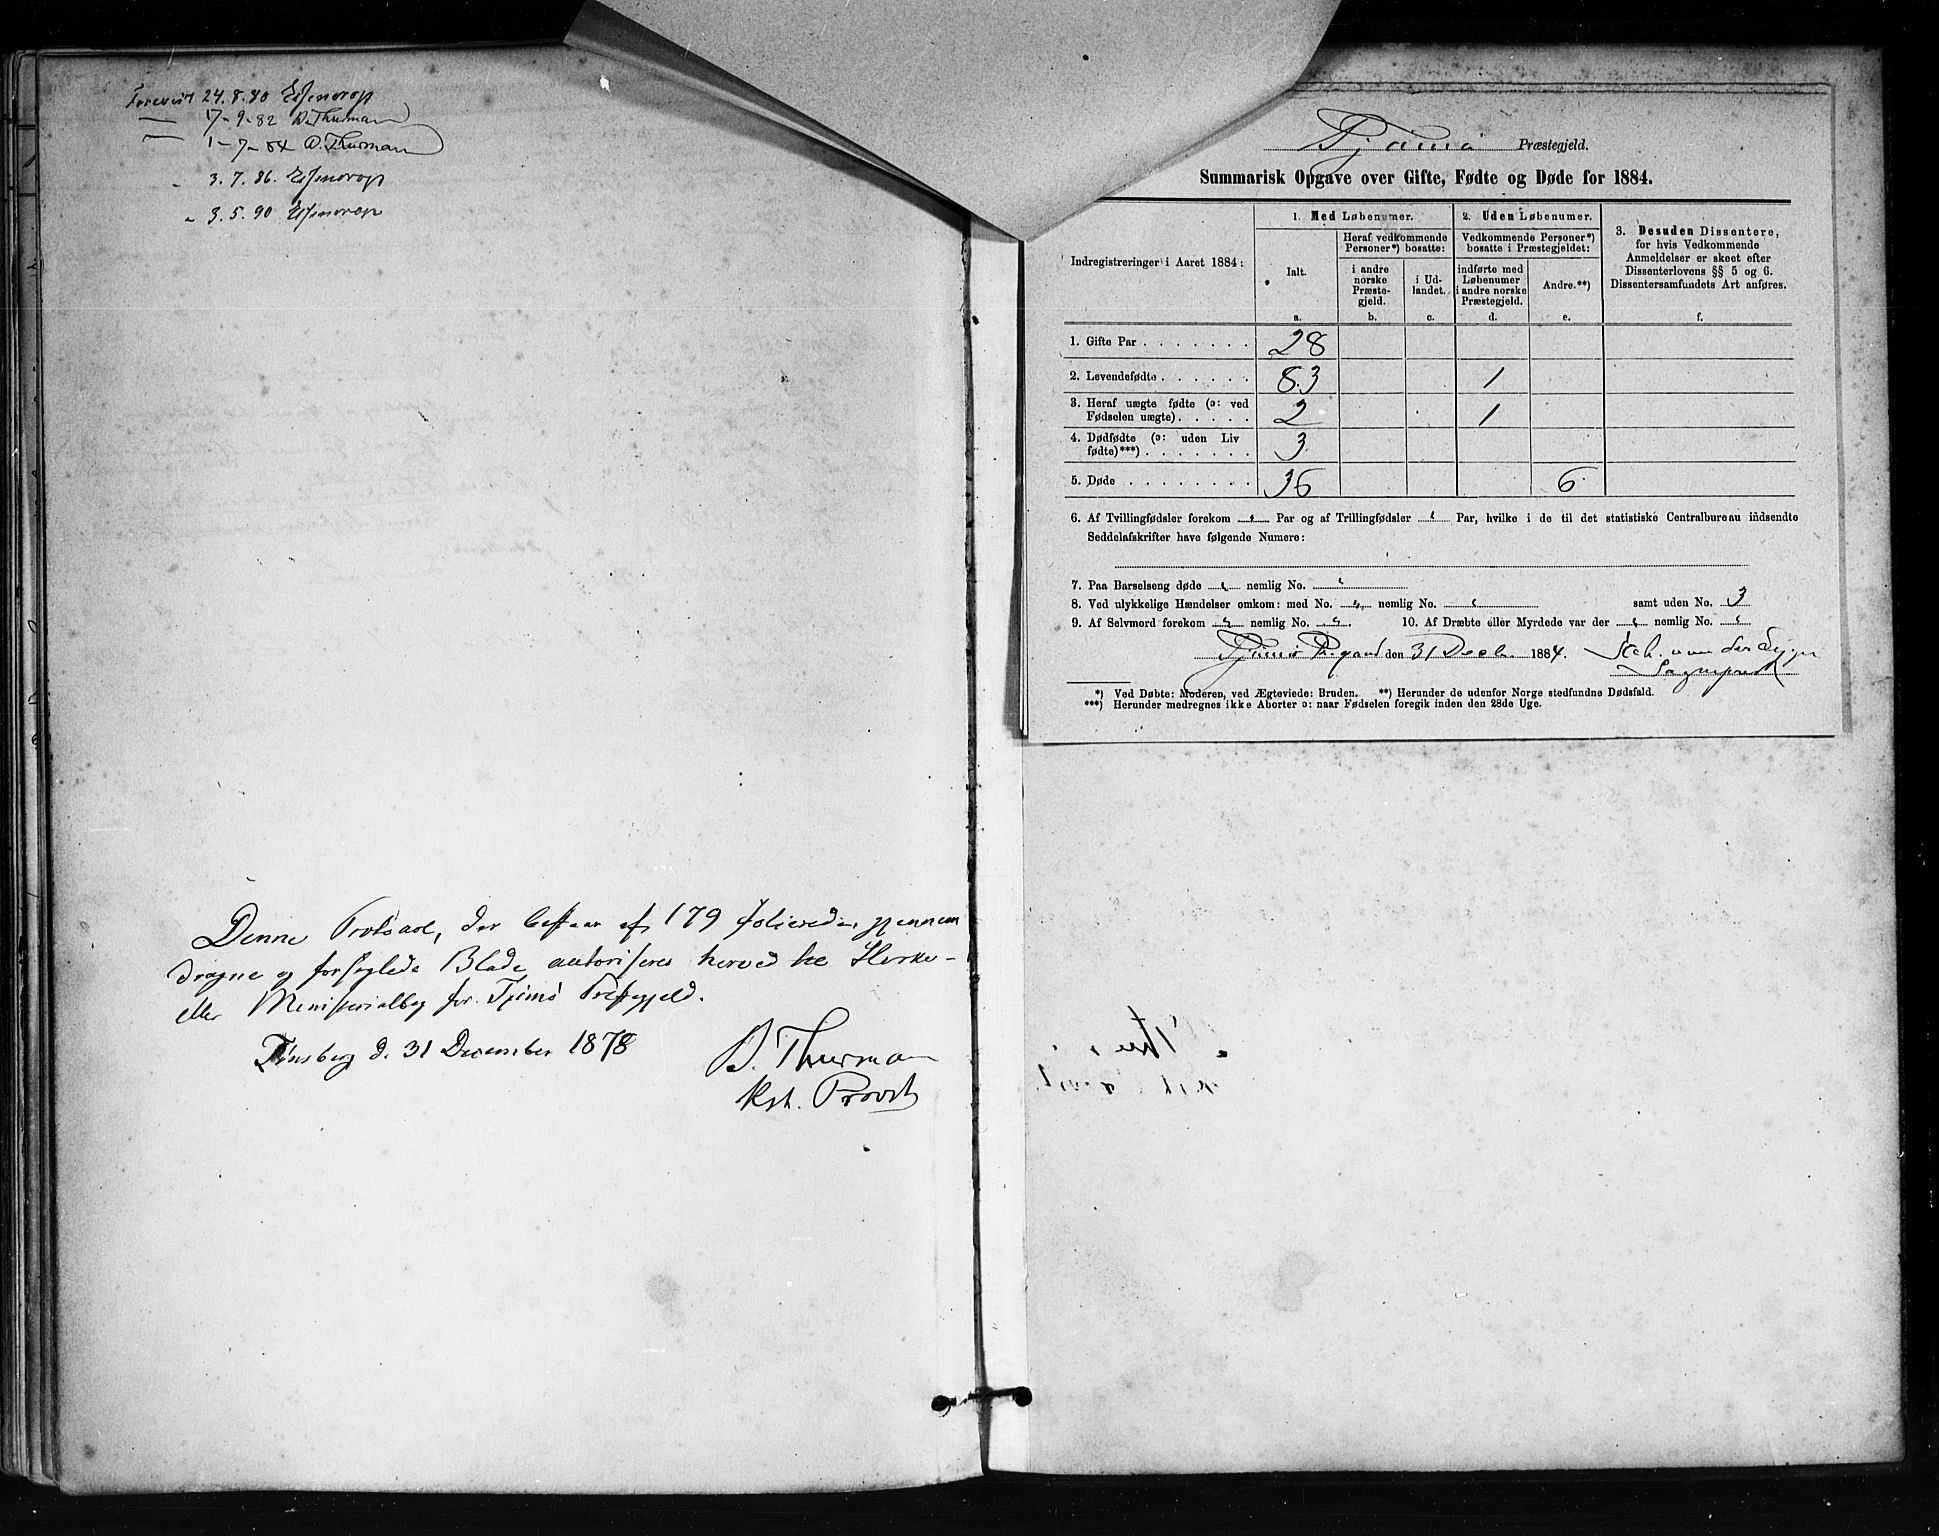 Forevist 24.8.80 Essendrop
— 17-9-82 D. Thurman
— 1-7-84 D. Thurman
" 3.7.86. Essendrop
" 3.5.90 Essendrop
Denne Protocol, der bestaar af 179 folierede, gjennem
dragne og forseglede Blade, autoriseres herved til Kirke-
eller Ministerialbog for Tjømø Præstegjeld.
Tønsberg d. 31 December 1878
D. Thurman
kst. Provst
Tjømø Præstegjeld.
Summarisk Opgave over Gifte, Fødte og Døde for 1884.
Indregistreringer i Aaret 1884:
1. Med Løbenumer.
2. Uden Løbenumer.
3. Desuden Dissentere,
for hvis Vedkommende
Anmeldelser er skeet efter
Dissenterlovens §§ 5 og 6.
Dissentersamfundets Art anføres.
Heraf vedkommende
Personer*) bosatte:
Vedkommende Personer*)
bosatte i Præstegjeldet:
Ialt.
i andre
norske
Præste-
gjeld.
i Ud-
landet.
indførte med
Løbenumer
i andre norske
Præstegjeld.
Andre.**)
a. b. c. d. e. f.
1. Gifte Par . . . . . . . 28
2. Levendefødte . . . . . . 83 1
3. Heraf uægte fødte (ɔ: ved
Fødselen uægte) . . . . . 2 1
4. Dødfødte (ɔ: uden Liv
fødte)***) . . . . . . . 3
5. Døde . . . . . . . . 36 6
6. Af Tvillingfødsler forekom " Par og af Trillingfødsler " Par, hvilke i de til det statistiske Centralbureau indsendte
Seddelafskrifter have følgende Numere:
7. Paa Barselseng døde " nemlig No. "
8. Ved ulykkelige Hændelser omkom: med No. " nemlig No. " samt uden No. 3
9. Af Selvmord forekom " nemlig No. ". 10. Af Dræbte eller Myrdede var der " nemlig No. "
Tjømø Prgaard den 31 Decb. 1884.
Sogneprest
*) Ved Døbte: Moderen, ved Ægteviede: Bruden. **) Herunder de udenfor Norge stedfundne Dødsfald.
***) Herunder medregnes ikke Aborter ɔ: naar Fødselen foregik inden den 28de Uge.